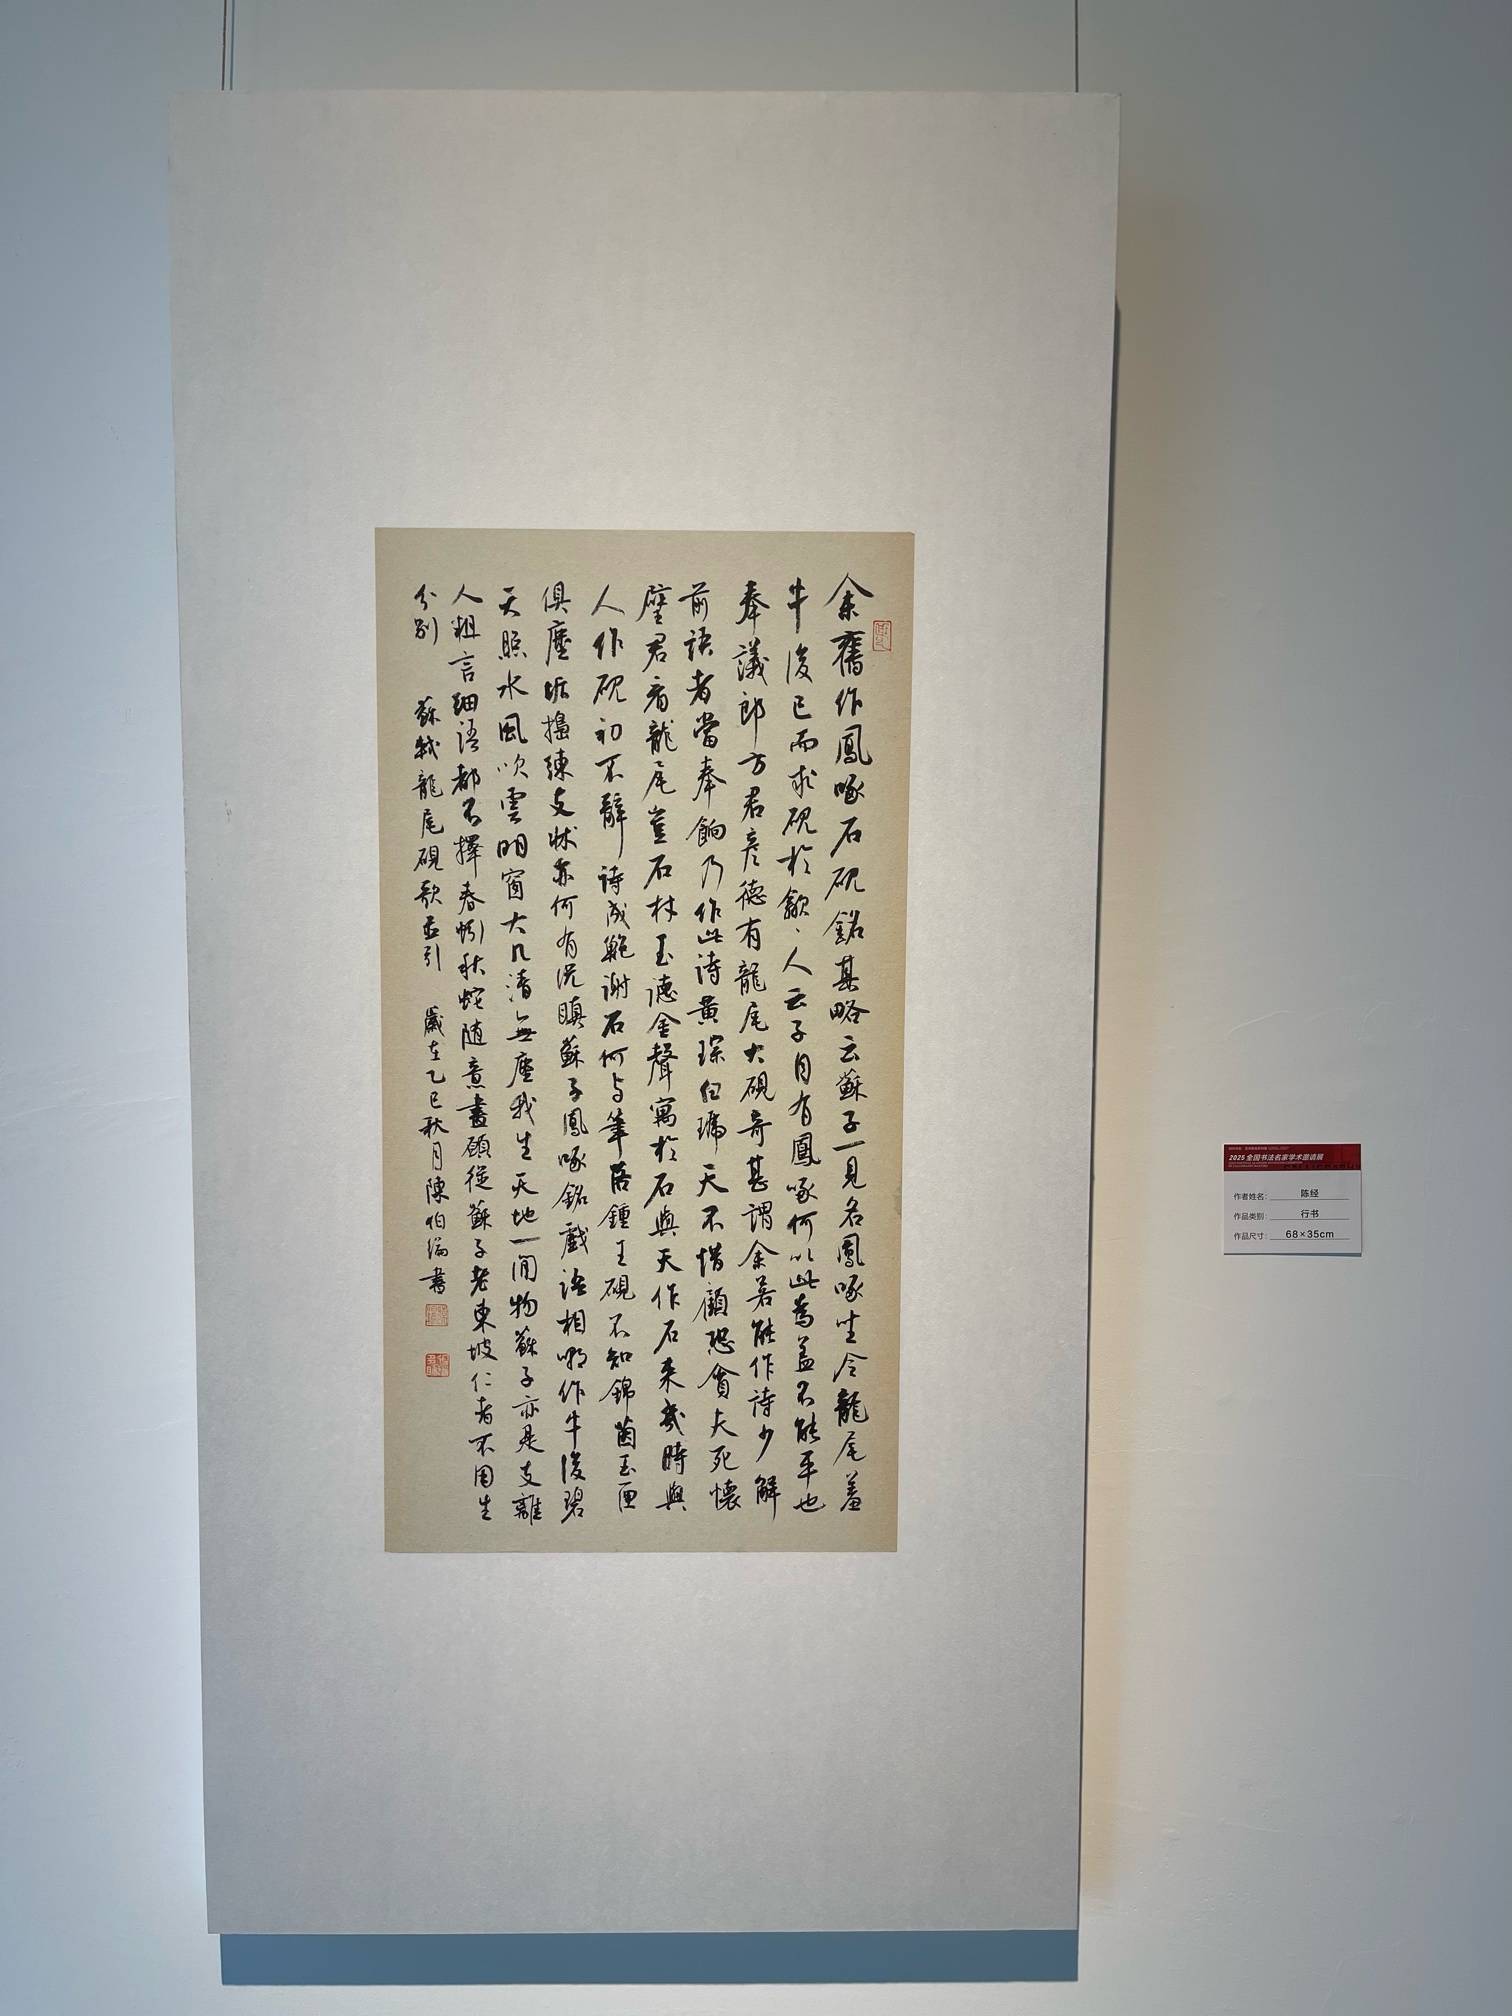 余舊作鳳咮石硯銘其略云蘇子一見名鳳咮坐令龍尾羞
牛後已而求硯於歙歙人云子自有鳳咮何以此為蓋不能平也
奉議郎方君彥德有龍尾大硯奇甚謂余若能作詩少解
前語者當奉餉乃作此詩黃琮白琥天不惜顧恐貪夫死懷
璧君看龍尾豈石材玉德金聲寓於石與天作石來幾時與
人作硯初不辭詩成鮑謝石何与筆落鍾王硯不知錦茵玉匣
俱塵垢搗練支牀亦何有況瞋蘇子鳳咮銘戲語相嘲作牛後碧
天照水風吹雲明窗大几清無塵我生天地一閒物蘇子亦是支離
人粗言細語都不擇春蚓秋蛇隨意畫願從蘇子老東坡仁者不用生
分別 蘇軾龍尾硯歌並引 歲在乙巳秋月陳怕綸書
2025全国书法名家学术邀请展
作者姓名: 陈经
作品类别: 行书
作品尺寸: 68×35cm